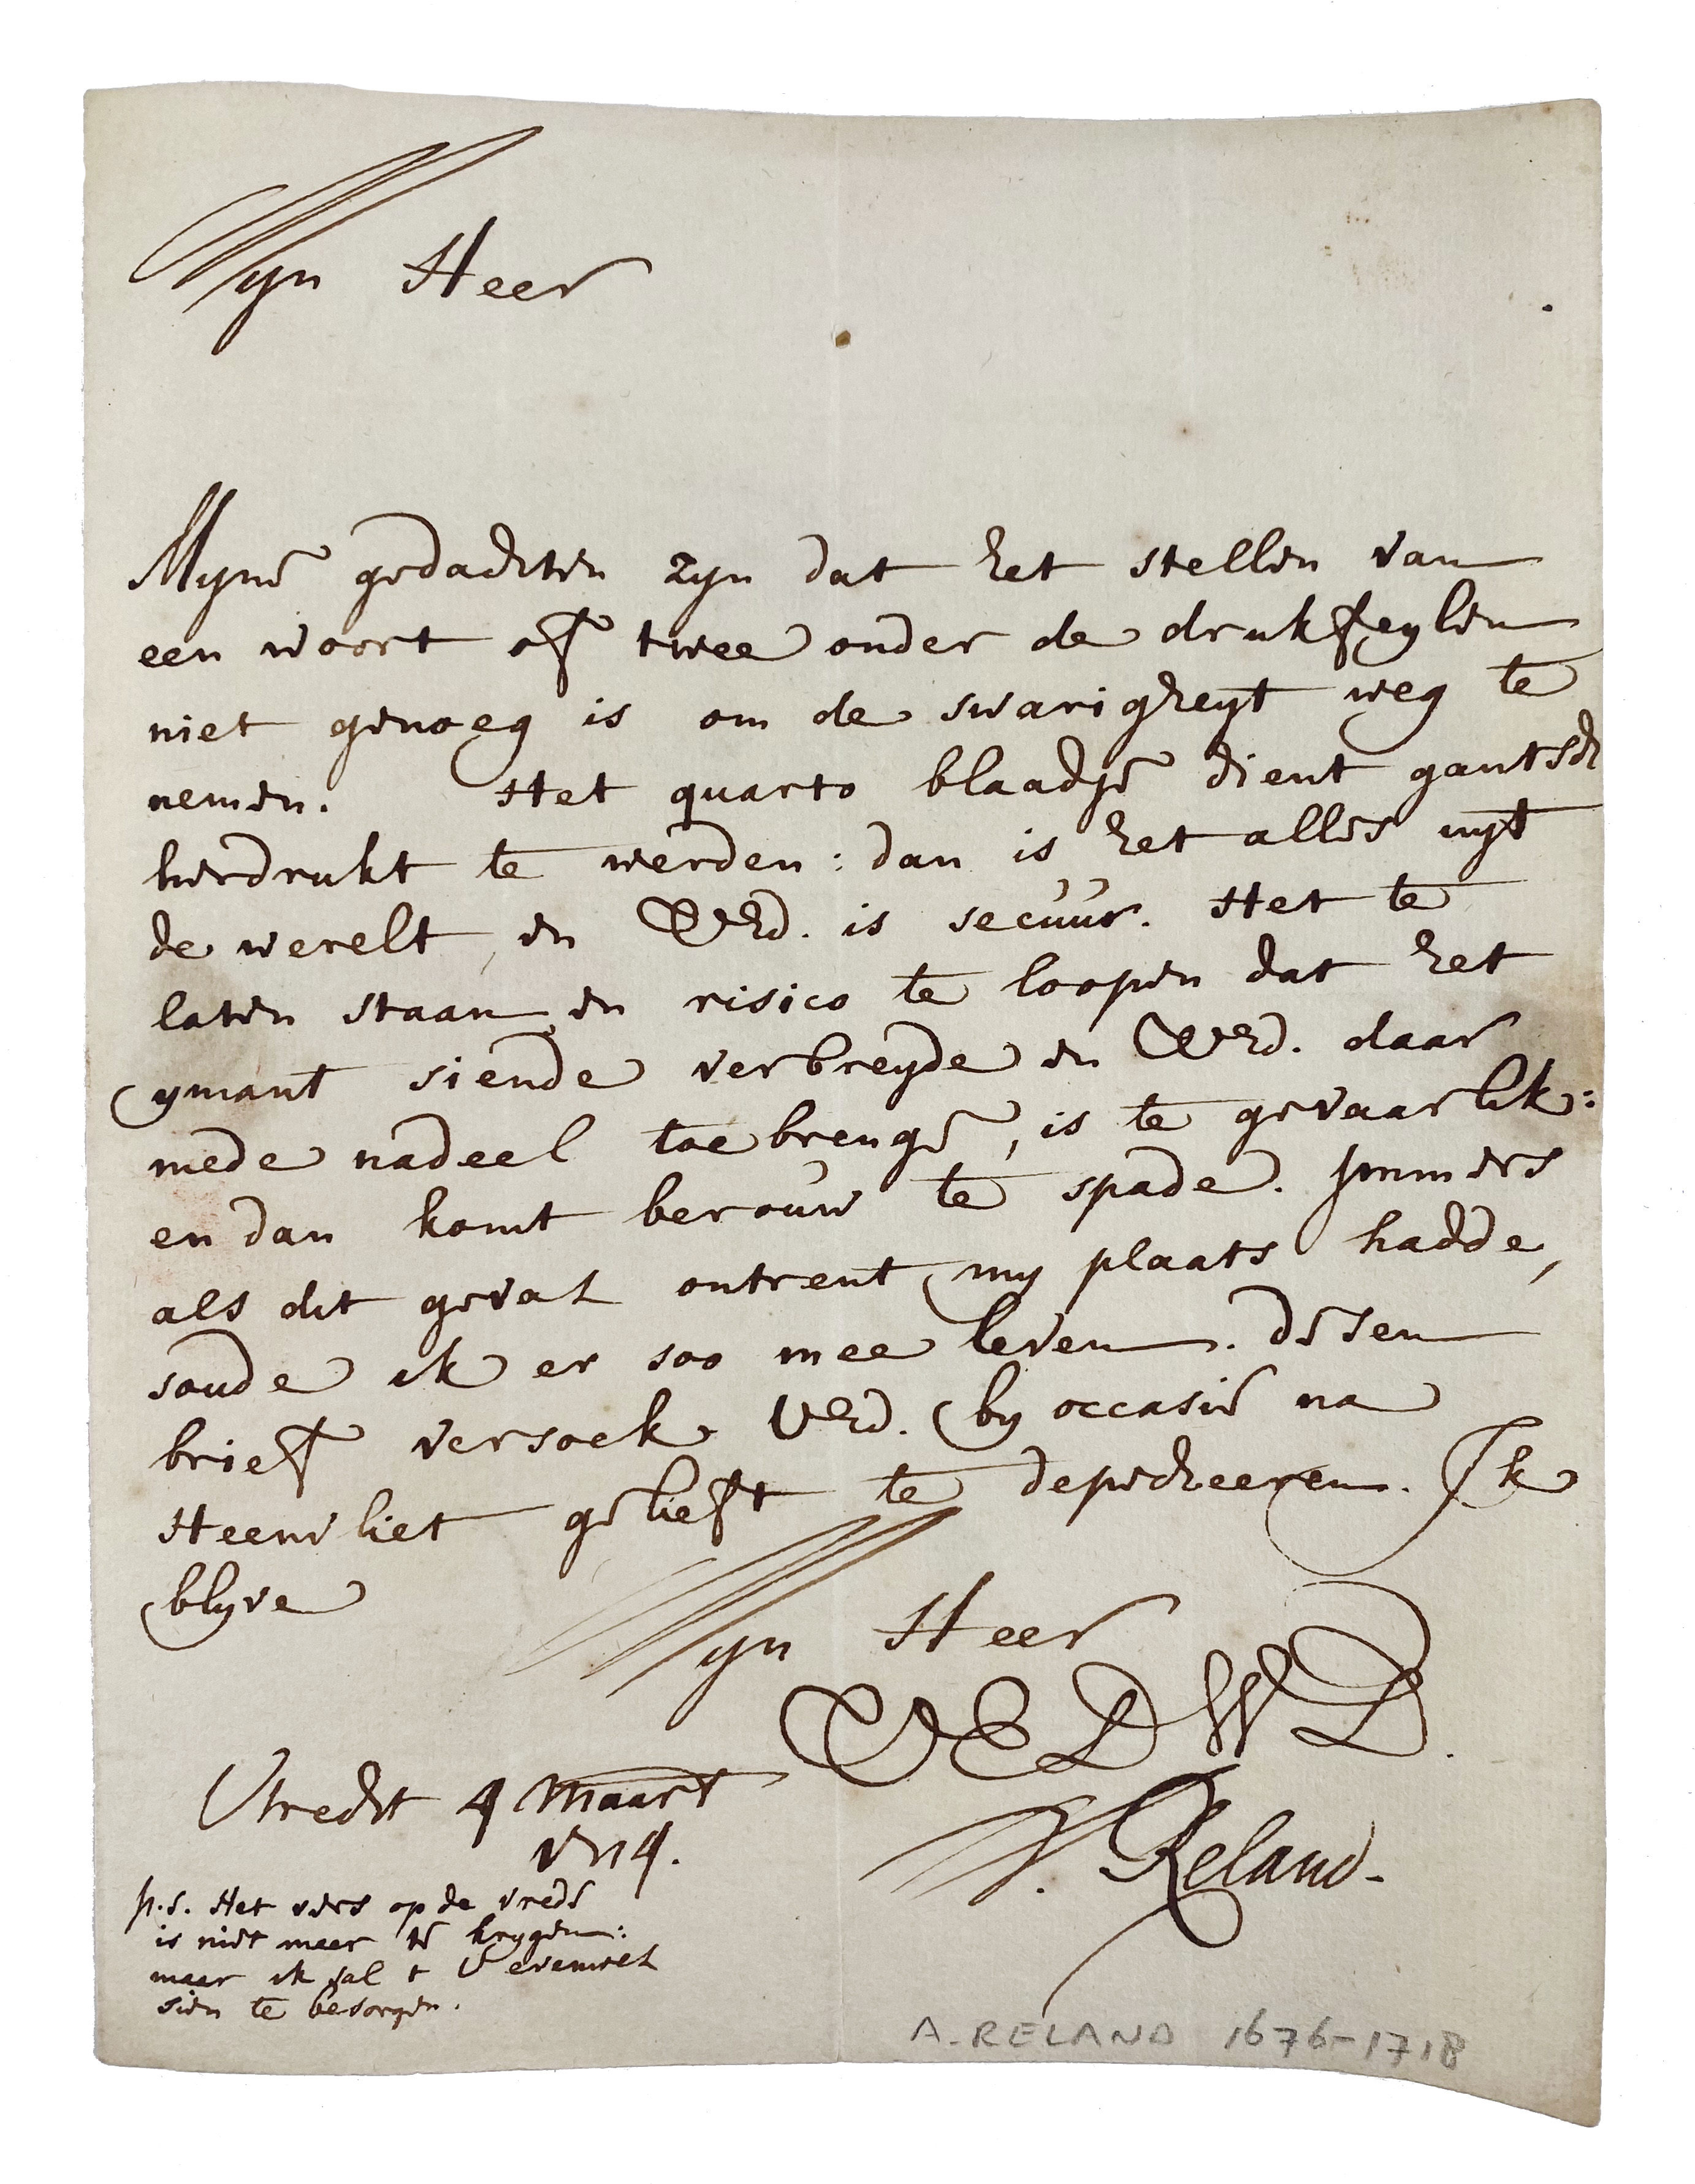 Myn Heer
Myne gedachten zyn dat het stellen van
een woort of twee onder de drukfeylen
niet genoeg is om de swarigheyt weg te
nemen. Het quarto blaadje dient gantsch
herdrukt te werden: dan is het alles uyt
de werelt, en UEd. is secuur. Het te
laten staan, en risico te loopen dat het
ymant siende verbreyde en UEd. daar
mede nadeel toebrenge, is te gevaarlik:
en dan komt berouw te spade. Immers
als dit geval ontrent my plaats hadde,
soude ik er soo mee leven. Desen
brief versoek UEd. by occasie na
Heenvliet gelieft te depecheeren. Ik
blyve
Myn Heer
UEDWD.
Utrecht 4 Maart
1714.
H. Reland.
p.s. Het vers op de vrede
is niet meer te krygen:
maar ik sal t U evenwel
sien te besorgen.
A. RELAND 1676-1718